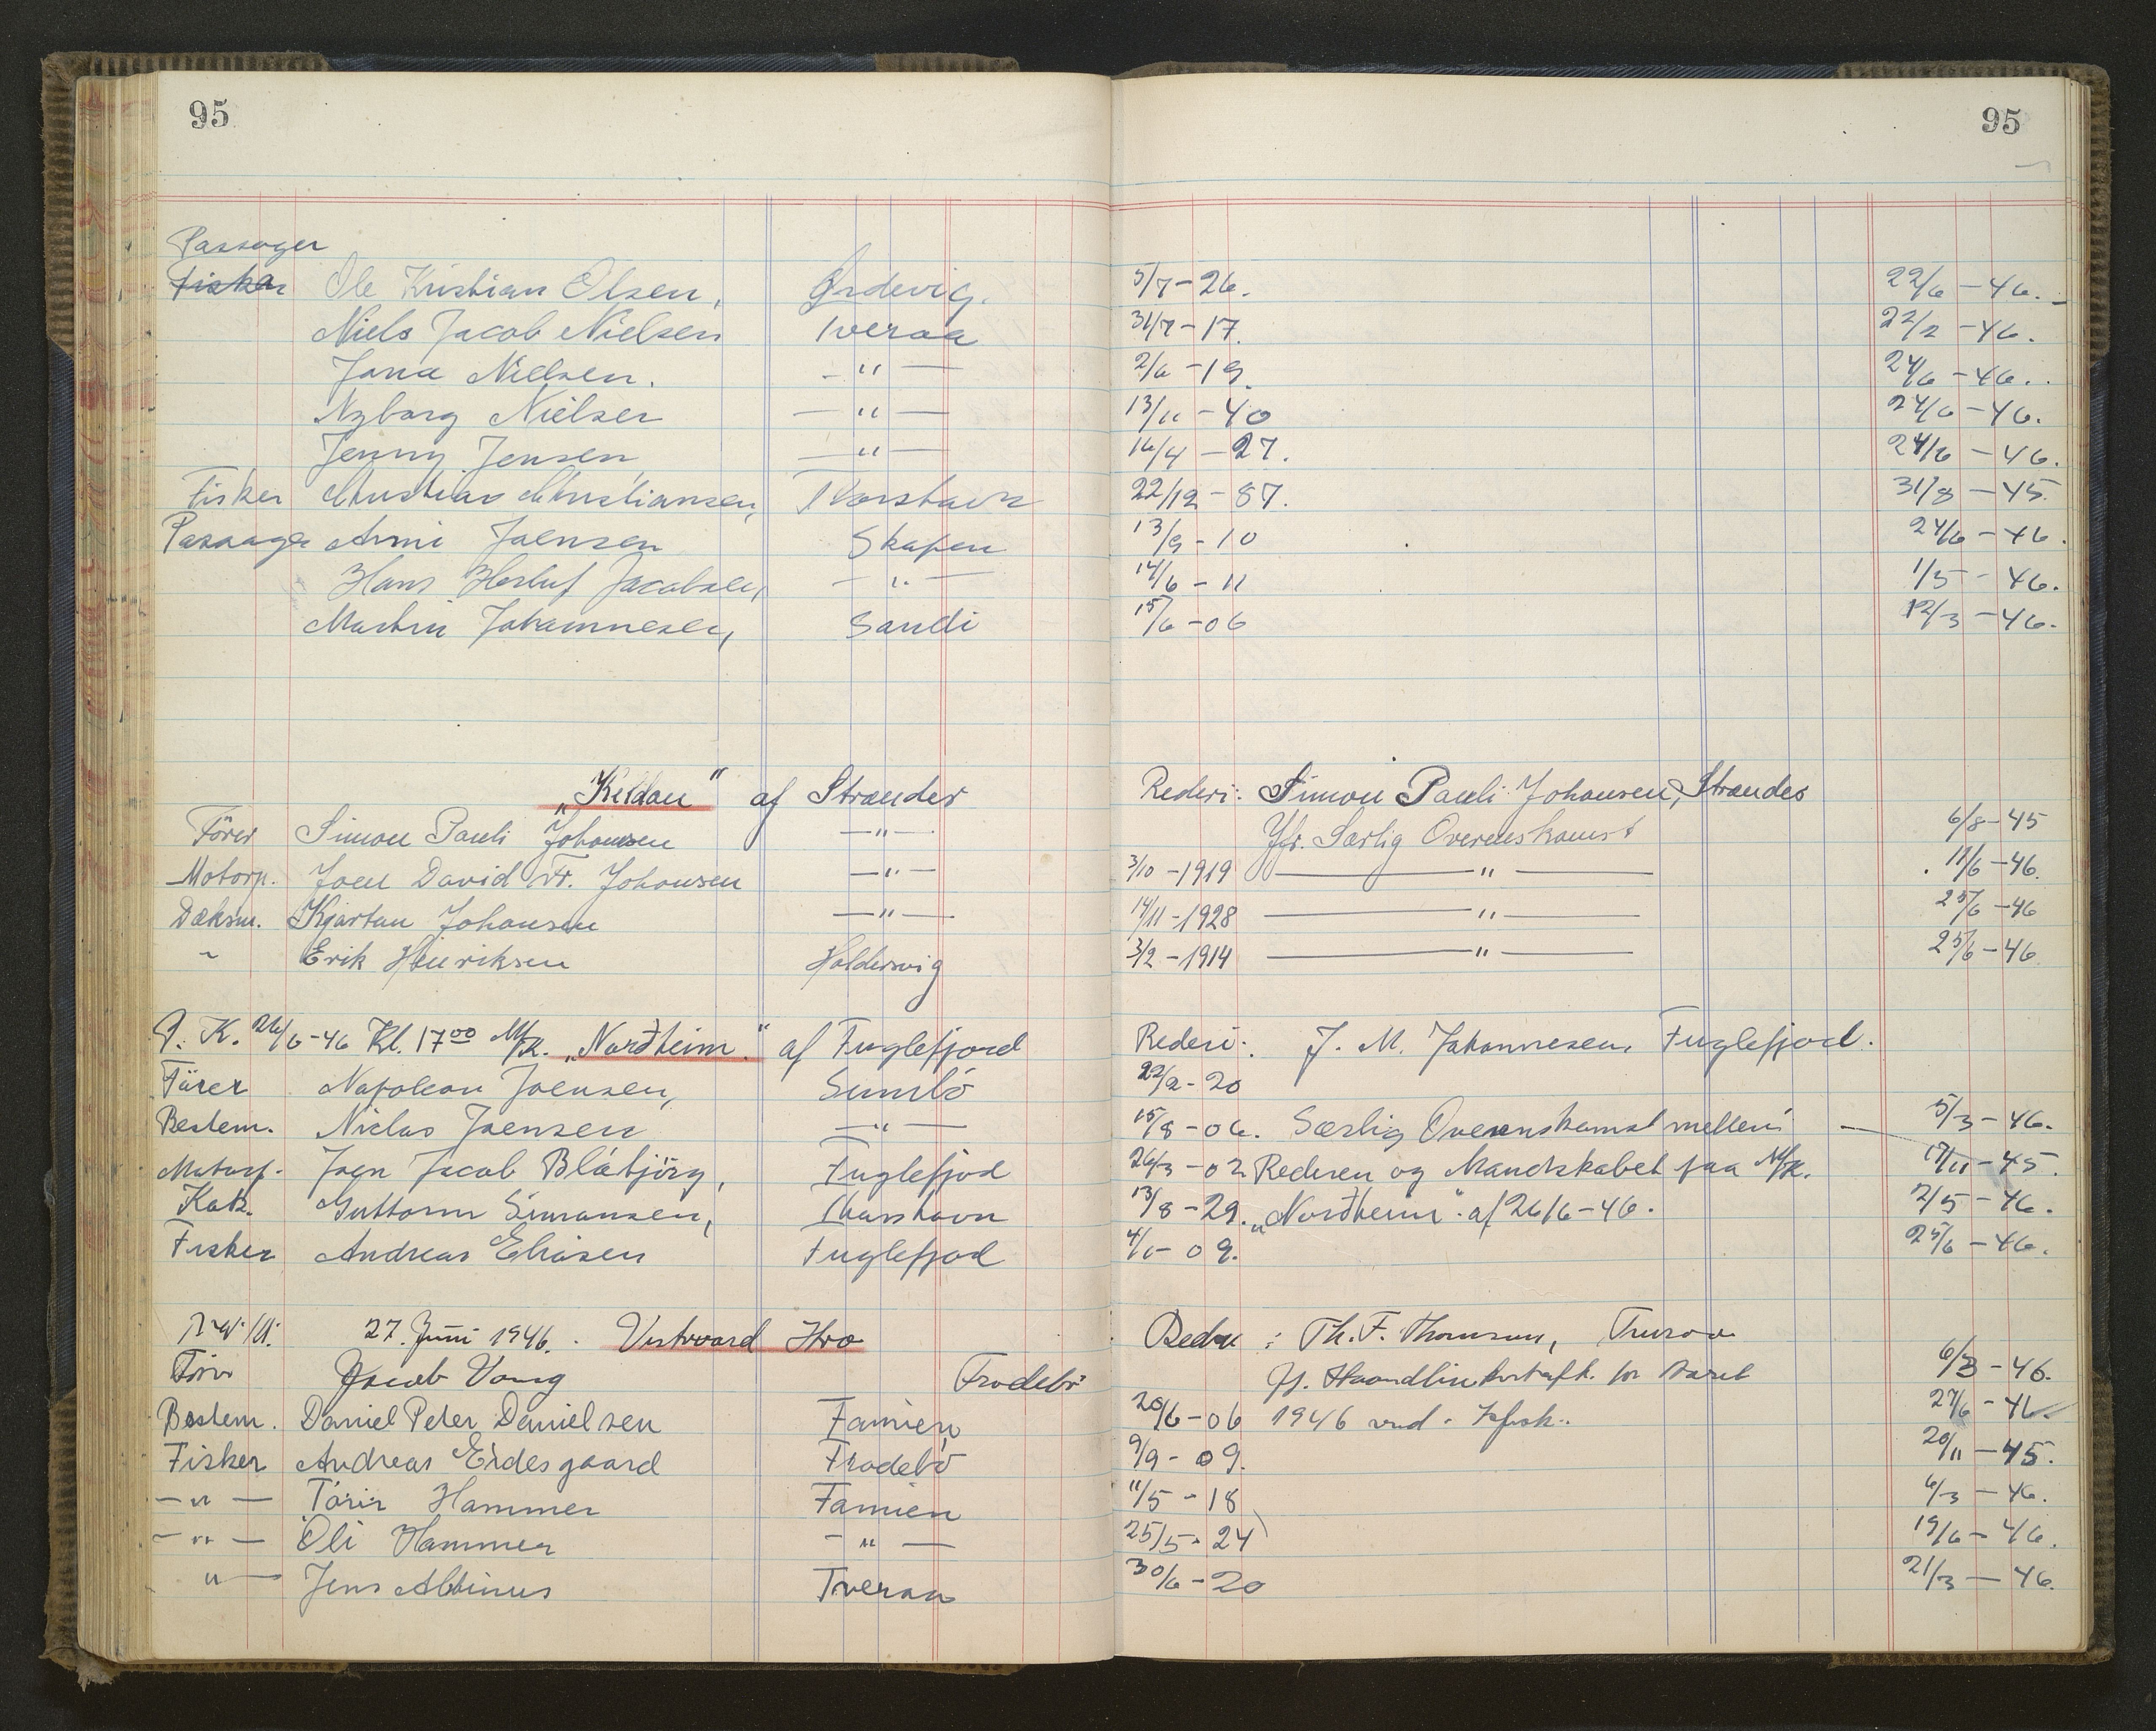 95 95
Passager
Fisker Ole Kristian Olsen, Ørdevig. 5/7-26. 22/6-46.
Niels Jacob Nielsen Tveraa 31/7-17. 22/2-46.
Jona Nielsen. -"- 2/6-19. 24/6-46.
Nyborg Nielsen -"- 13/11-40 24/6-46.
Jenny Jensen -"- 16/4-27. 24/6-46.
Fisker Christian Christiansen, Thorshavn 22/12-87. 31/8-45.
Passager Arni Joensen Skapen 13/9-10 24/6-46.
Hans Herluf Jacobsen, -"- 14/6-11 1/5-46.
Martin Johannesen, Sandi 15/6-06 12/3-46.
"Keldan" af Strander Rederi: Simon Pauli Johansen, Strander
Förer Simon Pauli Johansen -"- Jfr. Særlig Overenskomst 6/8-45
Motorp. Joen David Fr. Johansen -"- 3/10-1919 -"- 11/6-46.
Dæksm. Kjartan Johansen -"- 14/11-1928 -"- 25/6-46
" Erik Hinriksen Haldersvig 3/2-1914 -"- 25/6-46
P. K. 26/6-46 Kl. 17⁰⁰ M/K. "Norðheim" af Fuglefjord Rederi: J. M. Johannesen, Fuglefjord.
Förer Napoleon Joensen, Sumbö 22/2-20
Bestem. Niclas Joensen -"- 15/8-06. Særlig Overenskomst mellem 5/3-46.
Motorp. Joen Jacob Blábjörg, Fuglefjod 26/3-02 Rederen og Mandskabet paa M/K. 17/11-45.
Kok. Guttorm Simonsen, Thorshavn 13/8-29. "Norðheim" af 26/6-46. 2/5-46.
Fisker Andreas Eliasen Fuglefjod 4/1-09. 25/6-46.
27. Juni 1946. Vestward Ho Rederi: Th. F. Thomsen, Tveraa
Förer Jacob Vang Frodebö 6/3-46.
Bestem. Daniel Peter Danielsen Famien 20/6-06 1946 27/6-46.
Fisker Andreas Eidesgaard Frodebö 9/9-09. 20/11-45.
-"- Tórir Hammer Famien 11/5-18 6/3-46.
-"- Óli Hammer -"- 25/5-24 19/6-46.
"- Jens Albinus Tveraa 30/6-20 21/3-46.